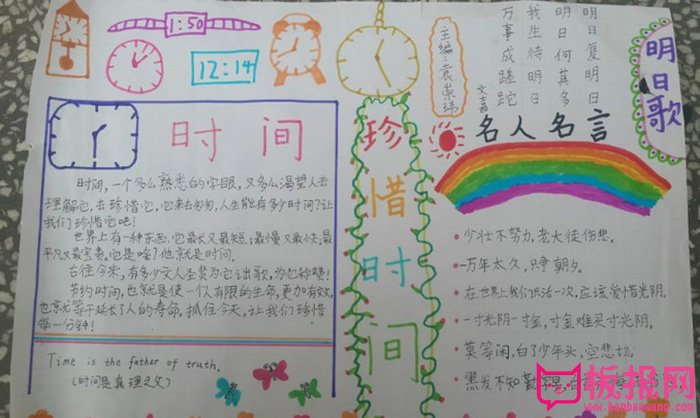 1:50
12:14
时间
时间,一个多么熟悉的字眼,又多么渴望人去
理解它,去珍惜它,它来去匆匆,人生能有多少时间?让
我们珍惜它吧!
世界上有一种东西,它最长又最短;最慢又最快;最
平凡又最宝贵。它是啥?他就是时间。
古往今来,有多少文人圣贤为它讴歌,为它称赞!
节约时间,也就是使一个人有限的生命,更加有效,
也就等于延长了人的寿命。抓住今天,让我们珍惜
每一分钟!
Time is the father of truth.
(时间是真理之父)
珍惜时间
主编:袁崇玮
明日歌
明日复明日
明日何其多
我生待明日
万事成蹉跎
文嘉
名人名言
少壮不努力,老大徒伤悲。
一万年太久,只争朝夕。
在世界上我们只活一次,应该爱惜光阴。
一寸光阴一寸金,寸金难买寸光阴。
莫等闲,白了少年头,空悲切。
黑发不知勤学早,白首
板报网
www.banbaowang.com